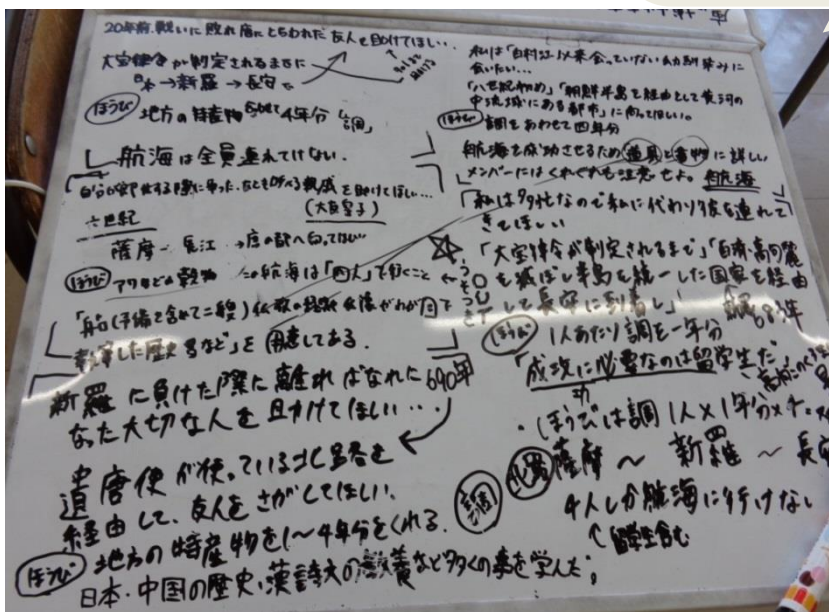 20年前、戦いに敗れ唐にとらわれた友人を助けてほしい…
大宝律令が制定されるまでに
日本→新羅→長安で
ほうび 地方の特産物 4年分「調」
航海は全員連れてけない.
を助けてほしい…
(大友皇子)
七世紀
薩摩 - 長江 →唐の都へ向ってほしい
ほうび この航海は「四人」で行くこと
「船(予備を含めて二艘)
など」を用意してある.
新羅に負けた際に離ればなれに
なった大切な人を助けてほしい…
690年
遣唐使が使っている北路を
経由して、友人をさがしてほしい.
ほうび 地方の特産物を1~4年分をくれる.
日本・中国の歴史、漢詩文の教養など多くの事を学んだ。
私は「白村江」以来会っていない幼馴染みに
会いたい…
「八世紀初め」「朝鮮半島を経由として黄河の
中流域にある都市」に向ってほしい。
ほうび 調をあわせて四年分
航海を成功させるため道具と書物に詳しい
メンバーにはくれぐれも注意せよ. 航海
「私は多忙なので私に代わり彼を連れて
きてほしい
「大宝律令が制定されるまで」「百済・高句麗
を滅ぼし半島を統一した国家を経由
して長安に到着し」
693年
うそつき
OUT
ほうび 1人あたり調を一年分
「成功に必要なのは留学生だ」
・ほうびは調1人×1年分×4
調
北路 薩摩 ~ 新羅 ~ 長安
4人しか航海に行けない
留学生含む